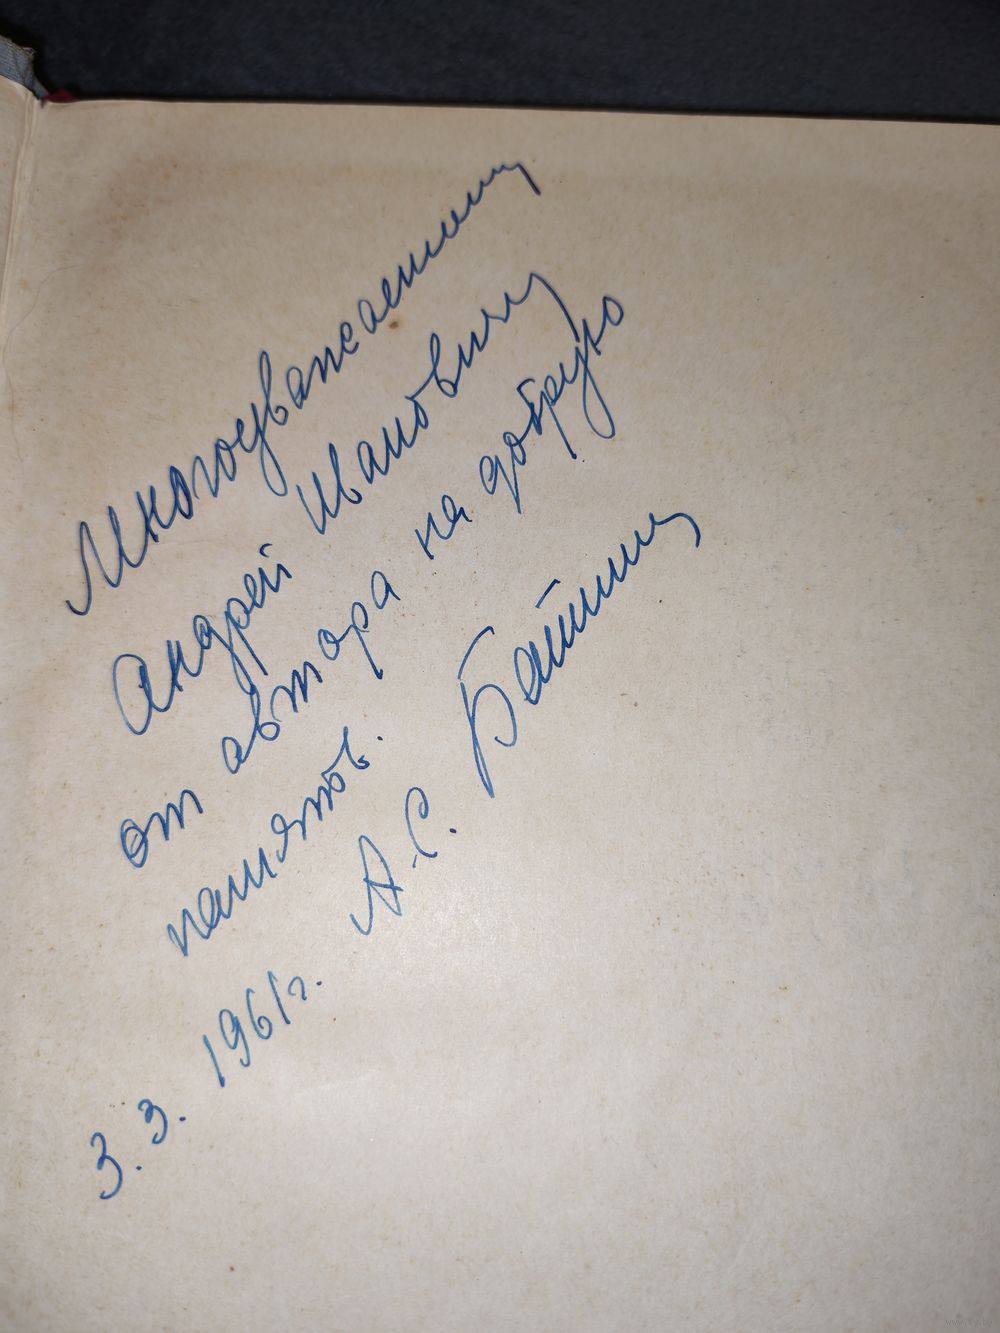 Многоуважаемому
Андрей Ивановичу
от автора на добрую
память.
А.С.
3.3. 1961г.